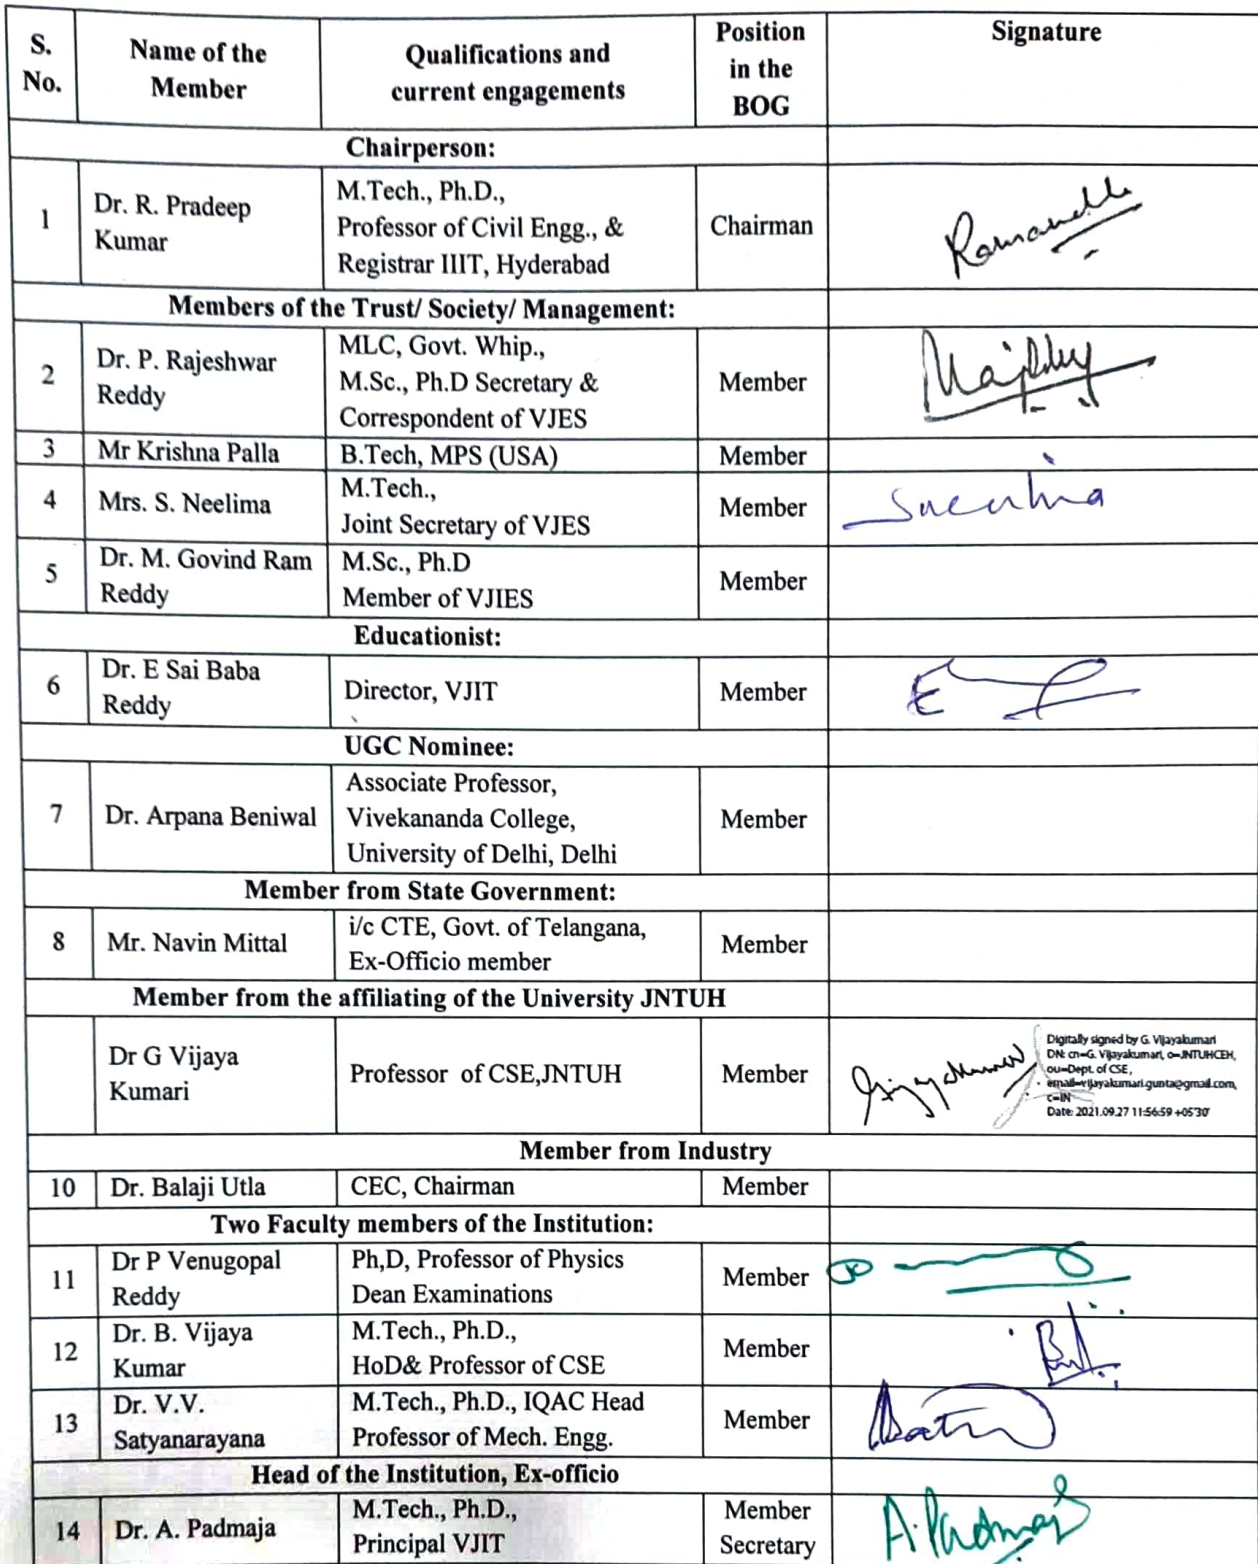 S. No.
Name of the Member
Qualifications and current engagements
Position in the BOG
Signature
Chairperson:
1
Dr. R. Pradeep
Kumar
M.Tech., Ph.D.,
Professor of Civil Engg., &
Registrar IIIT, Hyderabad
Chairman
Members of the Trust/ Society/ Management:
2
Dr. P. Rajeshwar
Reddy
MLC, Govt. Whip.,
M.Sc., Ph.D Secretary &
Correspondent of VJES
Member
3
Mr Krishna Palla
B.Tech, MPS (USA)
Member
4
Mrs. S. Neelima
M.Tech.,
Joint Secretary of VJES
Member
5
Dr. M. Govind Ram
Reddy
M.Sc., Ph.D
Member of VJIES
Member
Educationist:
6
Dr. E Sai Baba
Reddy
Director, VJIT
Member
UGC Nominee:
7
Dr. Arpana Beniwal
Associate Professor,
Vivekananda College,
University of Delhi, Delhi
Member
Member from State Government:
8
Mr. Navin Mittal
i/c CTE, Govt. of Telangana,
Ex-Officio member
Member
Member from the affiliating of the University JNTUH
Dr G Vijaya
Kumari
Professor of CSE,JNTUH
Member
Digitally signed by G. Vijayakumari
DN: cn=G. Vijayakumari, o=JNTUHCEH,
ou=Dept. of CSE,
email=vijayakumari.gunta@gmail.com,
c=IN
Date: 2021.09.27 11:56:59 +05'30'
Member from Industry
10
Dr. Balaji Utla
CEC, Chairman
Member
Two Faculty members of the Institution:
11
Dr P Venugopal
Reddy
Ph,D, Professor of Physics
Dean Examinations
Member
12
Dr. B. Vijaya
Kumar
M.Tech., Ph.D.,
HoD& Professor of CSE
Member
13
Dr. V.V.
Satyanarayana
M.Tech., Ph.D., IQAC Head
Professor of Mech. Engg.
Member
Head of the Institution, Ex-officio
14
Dr. A. Padmaja
M.Tech., Ph.D.,
Principal VJIT
Member
Secretary
A. Padmaja